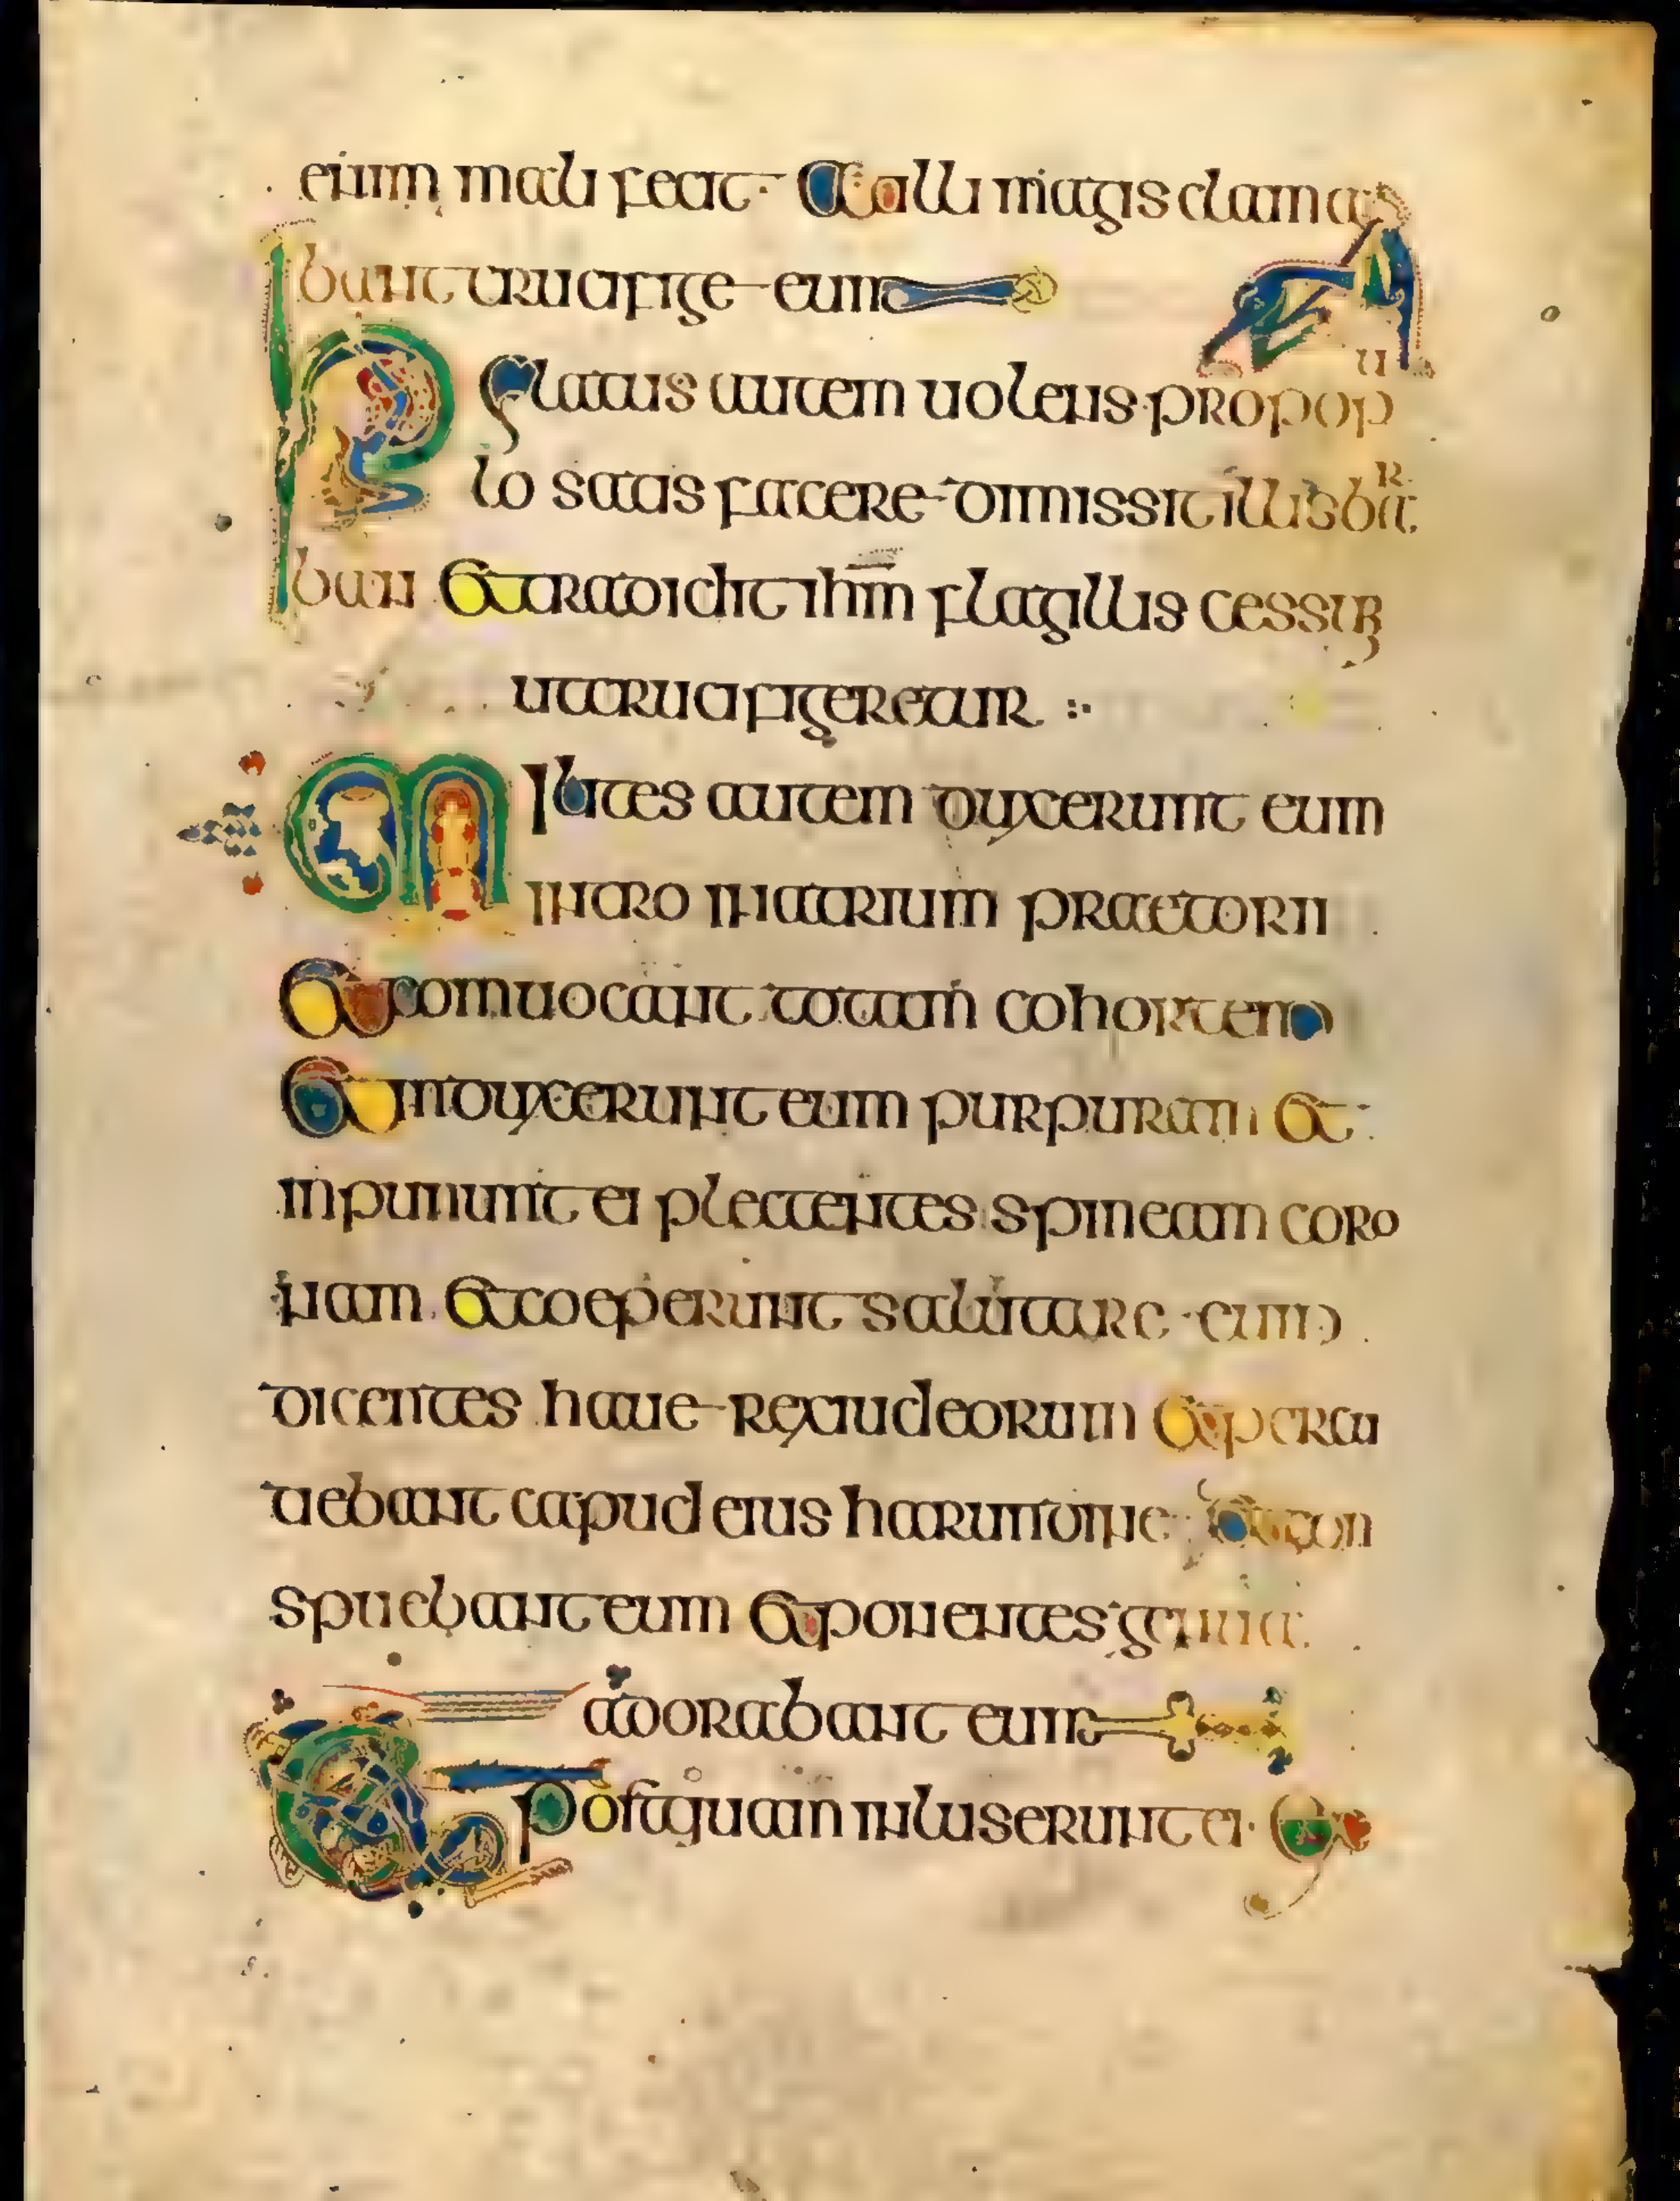 enim mali fecit · At illi magis clama
bant crucifige eum
Pilatus autem uolens popop u
lo satis facere dimissit illis bar
ban et tradidit ihm flagillis cessum
ut crucifigeretur
Milites autem duxerunt eum
intro in atrium praetorii
et conuocant totam cohortem
et induxerunt eum purpuram et
inpununt ei plectentes spineam coro
nam et coeperunt salutare eum
dicentes haue rex iudeorum et percu
tiebant capud eius harundine et con
spuebant eum et ponentes genua
adorabant eum
Et postquam inluserunt ei · ex